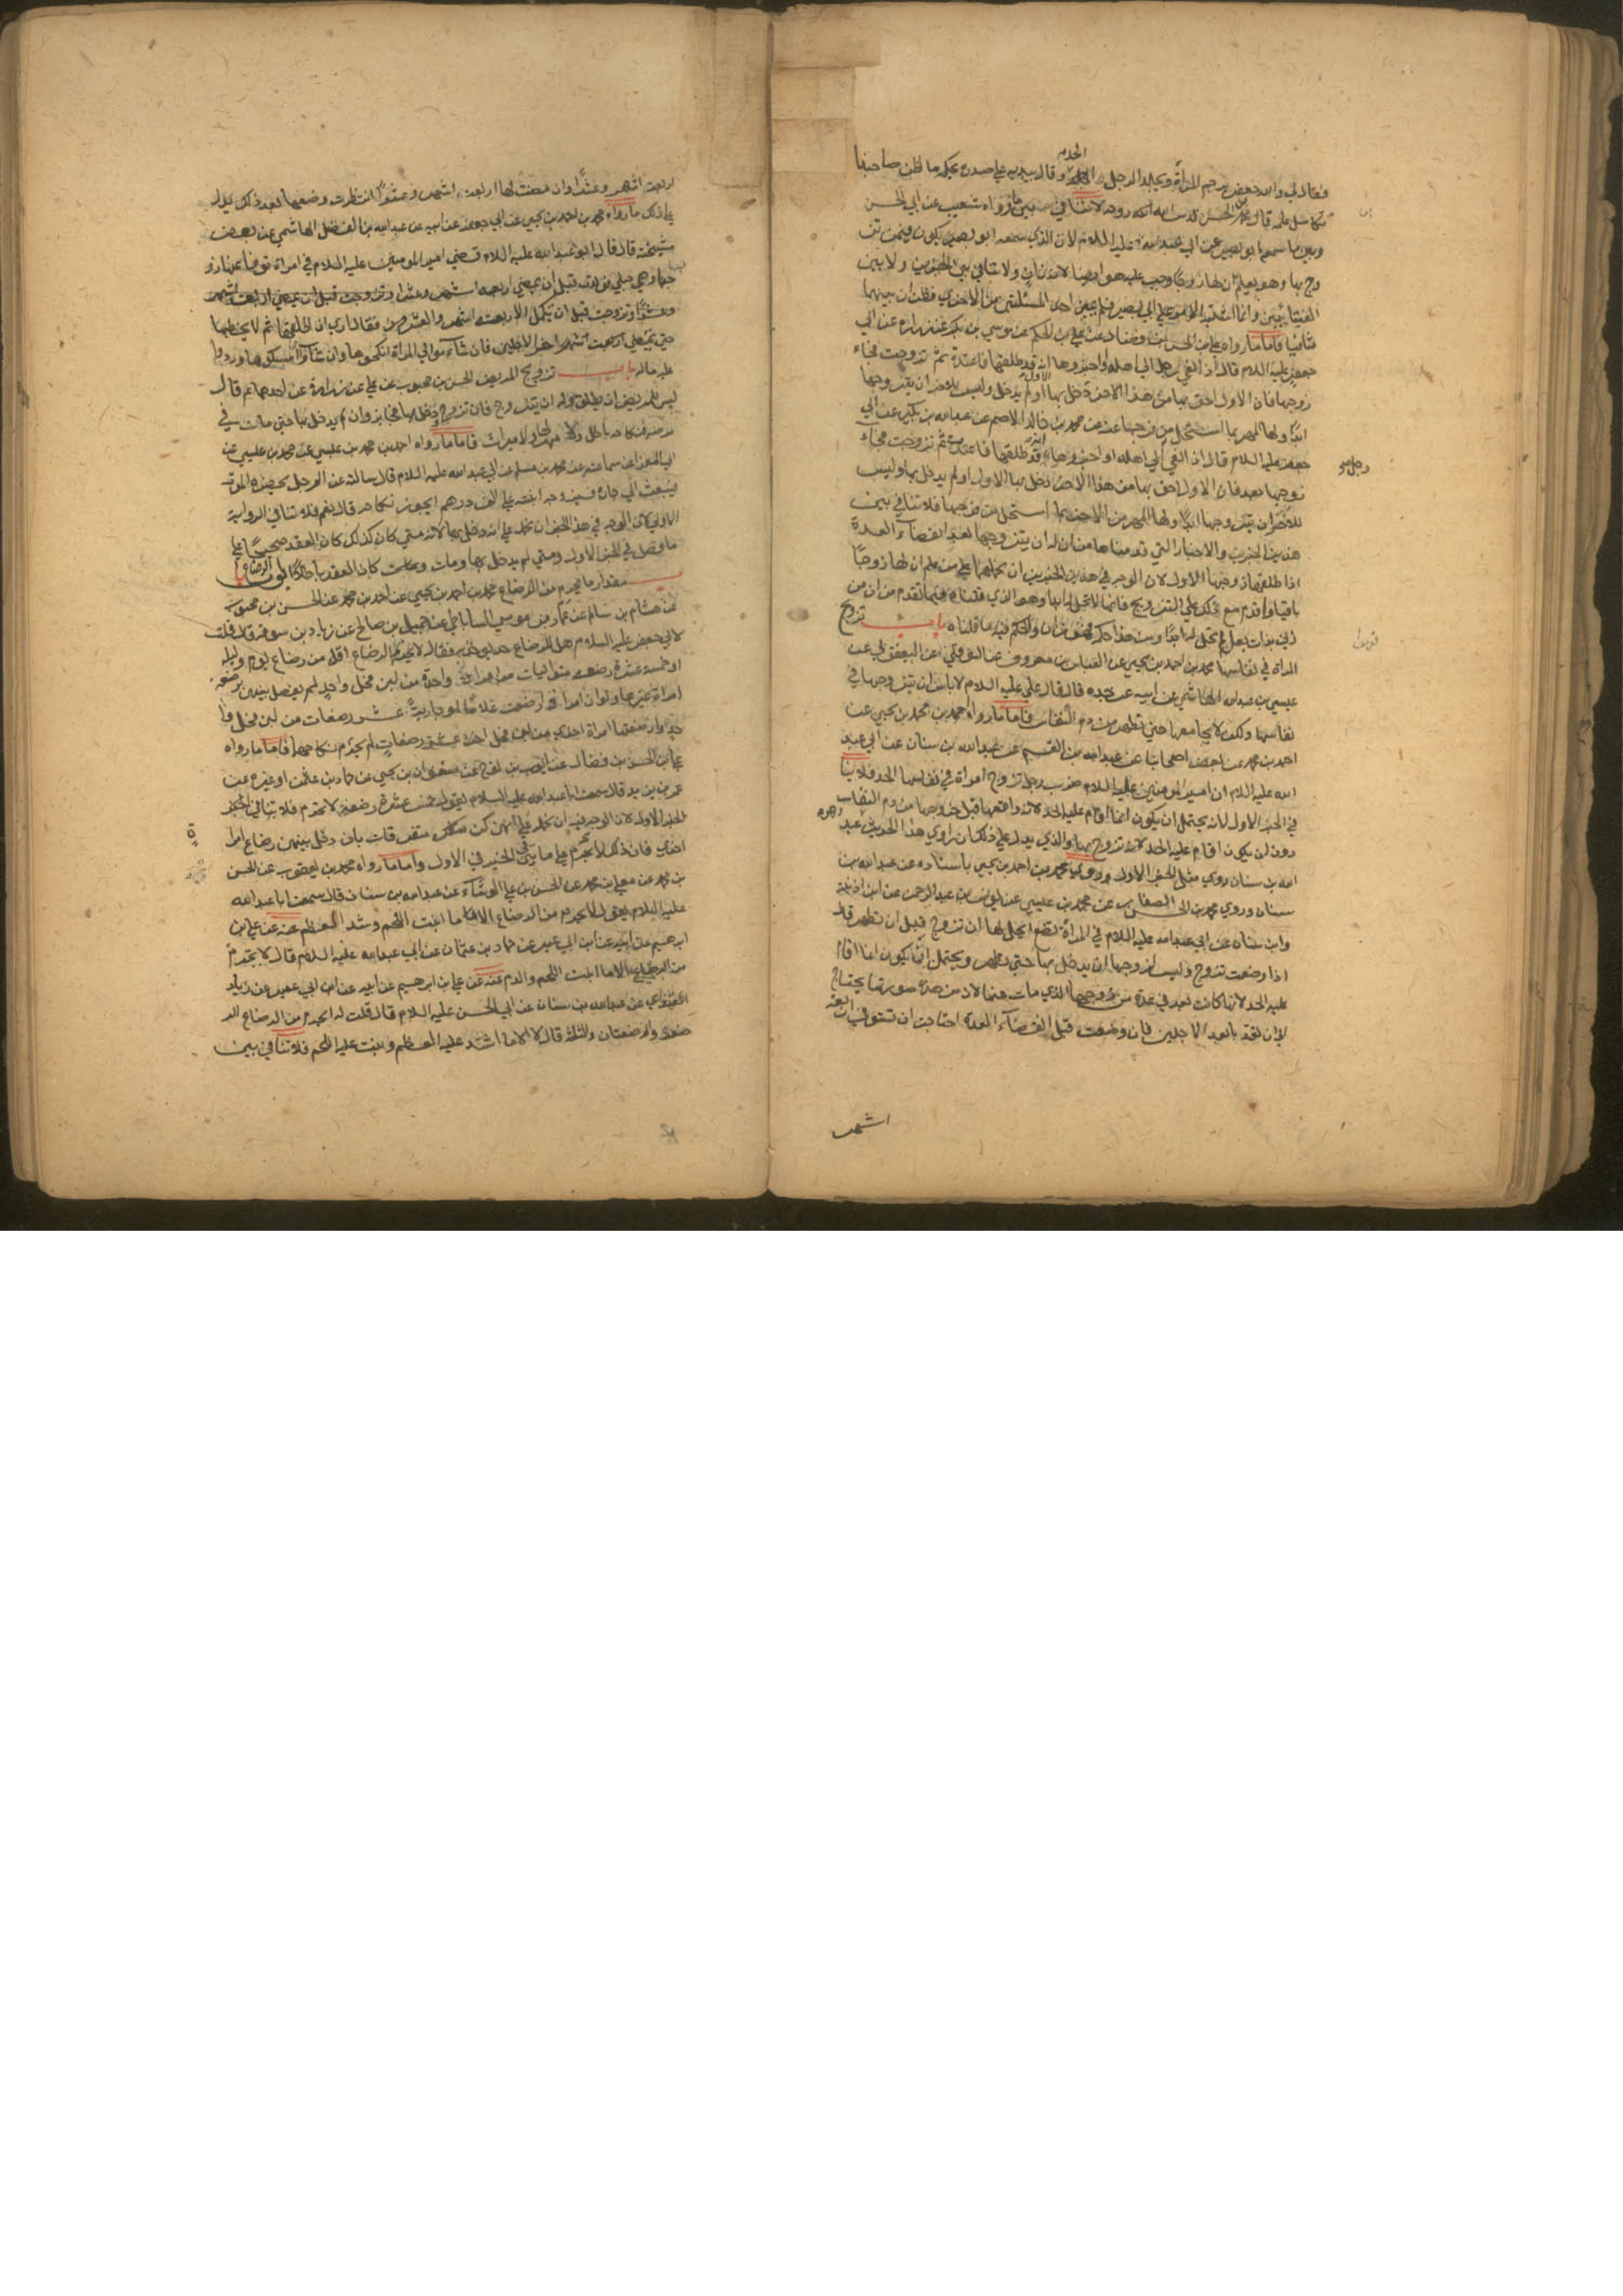 فقال لي والله جعفر يرجم المرأة ويجلد الرجل الحد وقال بيده على صدره يحكه ما اظن صاحبنا
تكامل علمه قال محمد بن الحسن قدس الله روحه لا تنافي بين ما رواه شعيب عن ابي الحسن
وبين ما سمعه ابو بصير عن ابي عبد الله عليه السلام لان الذي سمعه ابو بصير يكون فيمن تز
وج بها وهو يعلم ان لها زوجا وجب عليه هو ايضا لانه زان ولا تنافي بين الخبرين ولا بين
الفتيائين وانما اشتبه الامر على ابي بصير فلم يميز احدى المسئلتين من الاخرى فظن ان بينهما
تنافيا فاما ما رواه علي بن الحسن بن فضال عن علي بن الحكم عن موسى بن بكر عن زرارة عن ابي
جعفر عليه السلام قال اذا نعي رجل الى اهله او اخبروها انه قد طلقها فاعتدت ثم تزوجت فجاء
زوجها فان الاول احق بها من هذا الاخر دخل بها الاول او لم يدخل وليس للاخر ان يتزوجها
ابدا ولها المهر بما استحل من فرجها عنه عن محمد بن خالد الاصم عن عبد الله بن بكير عن ابي
جعفر عليه السلام قال اذا نعي الى اهله او اخبروها انه قد طلقها فاعتدت ثم تزوجت فجاء
رجل
زوجها بعد فان الاول احق بها من هذا الاخر دخل بها الاول او لم يدخل بها وليس
للاخر ان يتزوجها ابدا ولها المهر من الاخر بما استحل من فرجها فلا تنافي بين
هذين الخبرين والاخبار التي قدمناها من ان له ان يتزوجها بعد انقضاء العدة
اذا طلقها زوجها الاول لان الوجه في هذين الخبرين ان نحملهما على من علم ان لها زوجا
باقيا واقدم مع ذلك على التزويج فانها لا تحل له ابدا وهو الذي قلناه فيما تقدم من ان من
زنى بذات بعل لم تحل له ابدا ومن هذا حكمه فهو زان والحكم فيه ما قلناه باب تزويج
المراة في نفاسها محمد بن احمد بن يحيى عن العباس بن معروف عن اليعقوبي عن
عيسى بن عبد الله الهاشمي عن ابيه عن جده قال قال علي عليه السلام لا باس ان يتزوجها في
نفاسها ولكن لا يجامعها حتى تطهر من دم النفاس فاما ما رواه احمد بن محمد بن يحيى عن
احمد بن محمد عن بعض اصحابنا عن عبد الله بن القسم عن عبد الله بن سنان عن ابي عبد
الله عليه السلام ان امير المومنين عليه السلام ضرب رجلا تزوج امراة في نفاسها الحد فلا ينا
في الخبر الاول لانه يحتمل ان يكون انما اقام عليه الحد لانه واقعها قبل خروجها من دم النفاس
دون ان يكون اقام عليه الحد لانه تزوج بها والذي يدل على ذلك ان راوي هذا الحديث عبد
الله بن سنان روى مثل الخبر الاول وروى محمد بن احمد بن يحيى باسناده عن عبد الله بن
سنان وروى محمد بن الحسن الصفار عن محمد بن عيسى عن يونس بن عبد الرحمن عن ابن اذينة
وابن سنان عن ابي عبد الله عليه السلام في المراة تضع ايحل لها ان تزوج قبل ان تطهر قال
اذا وضعت تزوج وليس لزوجها ان يدخل بها حتى تطهر ويحتمل ان يكون انما اقام
عليه الحد لانها كانت بعد في عدة من زوجها الذي مات عنها لان من هذه صورتها يحتاج
لان تعتد بابعد الاجلين فان وضعت قبل انقضاء العدة احتاجت ان تستوفي اربعة
اشهر
اربعة اشهر وعشرا وان مضت لها اربعة اشهر وعشرا انتظرت وضعها بعد ذلك يدل
على ذلك ما رواه محمد بن احمد بن يحيى عن ابي جعفر عن ابيه عن عبد الله بن الفضل الهاشمي عن بعض
مشيخته قال قال ابو عبد الله عليه السلام قضى امير المومنين عليه السلام في امراة توفي عنها زو
جها وهي حبلى فولدت قبل ان يمضي اربعة اشهر وعشرا وتزوجت قبل ان يمضي اربعة اشهر
وعشرا وتزوجت قبل ان تكمل الاربعة اشهر والعشر فقال ارى ان يطلقها ثم لا يخطبها
حتى يمضي اخر الاجلين فان شاء موالي المراة انكحوها وان شاؤا امسكوها وردوا
عليه ماله باب تزويج المريض الحسن بن محبوب عن علي عن زرارة عن احدهما ع قال
ليس للمريض ان يطلق وله ان يتزوج فان تزوج ودخل بها فجايز وان لم يدخل بها حتى مات في
مرضه فنكاحه باطل ولا مهر لها ولا ميراث فاما ما رواه احمد بن محمد بن عيسى عن محمد بن عيسى عن
ابي المغرا عن سماعة عن محمد بن مسلم عن ابي عبد الله عليه السلام قال سالته عن الرجل يحضره الموت
فيبعث الى جاره فيزوجه ابنته على الف درهم ايجوز نكاحه قال نعم فلا تنافي الرواية
الاولى لان الوجه في هذا الخبر ان نحمله على انه دخل بها لانه متى كان كذلك كان العقد صحيحا على
ما فصل في الخبر الاول ومتى لم يدخل بها ومات كان العقد باطلا ابواب الرضاع
باب مقدار ما يحرم من الرضاع محمد بن احمد بن يحيى عن احمد بن محمد عن الحسن بن محبوب
عن هشام بن سالم عن عمار بن موسى الساباطي عن جميل بن صالح عن زياد بن سوقة قال قلت
لابي جعفر عليه السلام هل للرضاع حد يوخذ به فقال لا يحرم الرضاع اقل من رضاع يوم وليلة
او خمسة عشر رضعة متواليات من امراة واحدة من لبن فحل واحد لم يفصل بينهن رضعة
امراة غيرها ولو ان امراة ارضعت غلاما او جارية عشر رضعات من لبن فحل وا
حد وارضعتها امراة اخرى من لبن فحل اخر عشر رضعات لم يحرم نكاحهما فاما ما رواه
علي بن الحسن بن فضال عن ايوب بن نوح عن صفوان بن يحيى عن حماد بن عثمن او غيره عن
عمر بن يزيد قال سمعت ابا عبد الله عليه السلام يقول خمس عشرة رضعة لا تحرم فلا تنافي الخبر
الخبر الاول لان الوجه فيه ان نحمله على انهن كن متفرقات بان دخل بينهن رضاع امرا
ة
اخرى فان ذلك لا يحرم على ما بين في الخبر الاول واما ما رواه محمد بن يعقوب عن الحسن
بن محمد عن معلى بن محمد عن الحسن بن علي الوشاء عن عبد الله بن سنان قال سمعت ابا عبد الله
عليه السلام يقول لا يحرم من الرضاع الا ما انبت اللحم وشد العظم عنه عن علي بن
ابرهيم عن ابيه عن ابن ابي عمير عن حماد بن عثمان عن ابي عبد الله عليه السلام قال لا يحرم
من الرضاع الا ما انبت اللحم والدم عنه عن علي بن ابرهيم عن ابيه عن ابن ابي عمير عن زياد
القندي عن عبد الله بن سنان عن ابي الحسن عليه السلام قال قلت له ايحرم من الرضاع الر
ضعة والرضعتان والثلثة قال لا الا ما اشتد عليه العظم ونبت عليه اللحم فلا تنافي بين